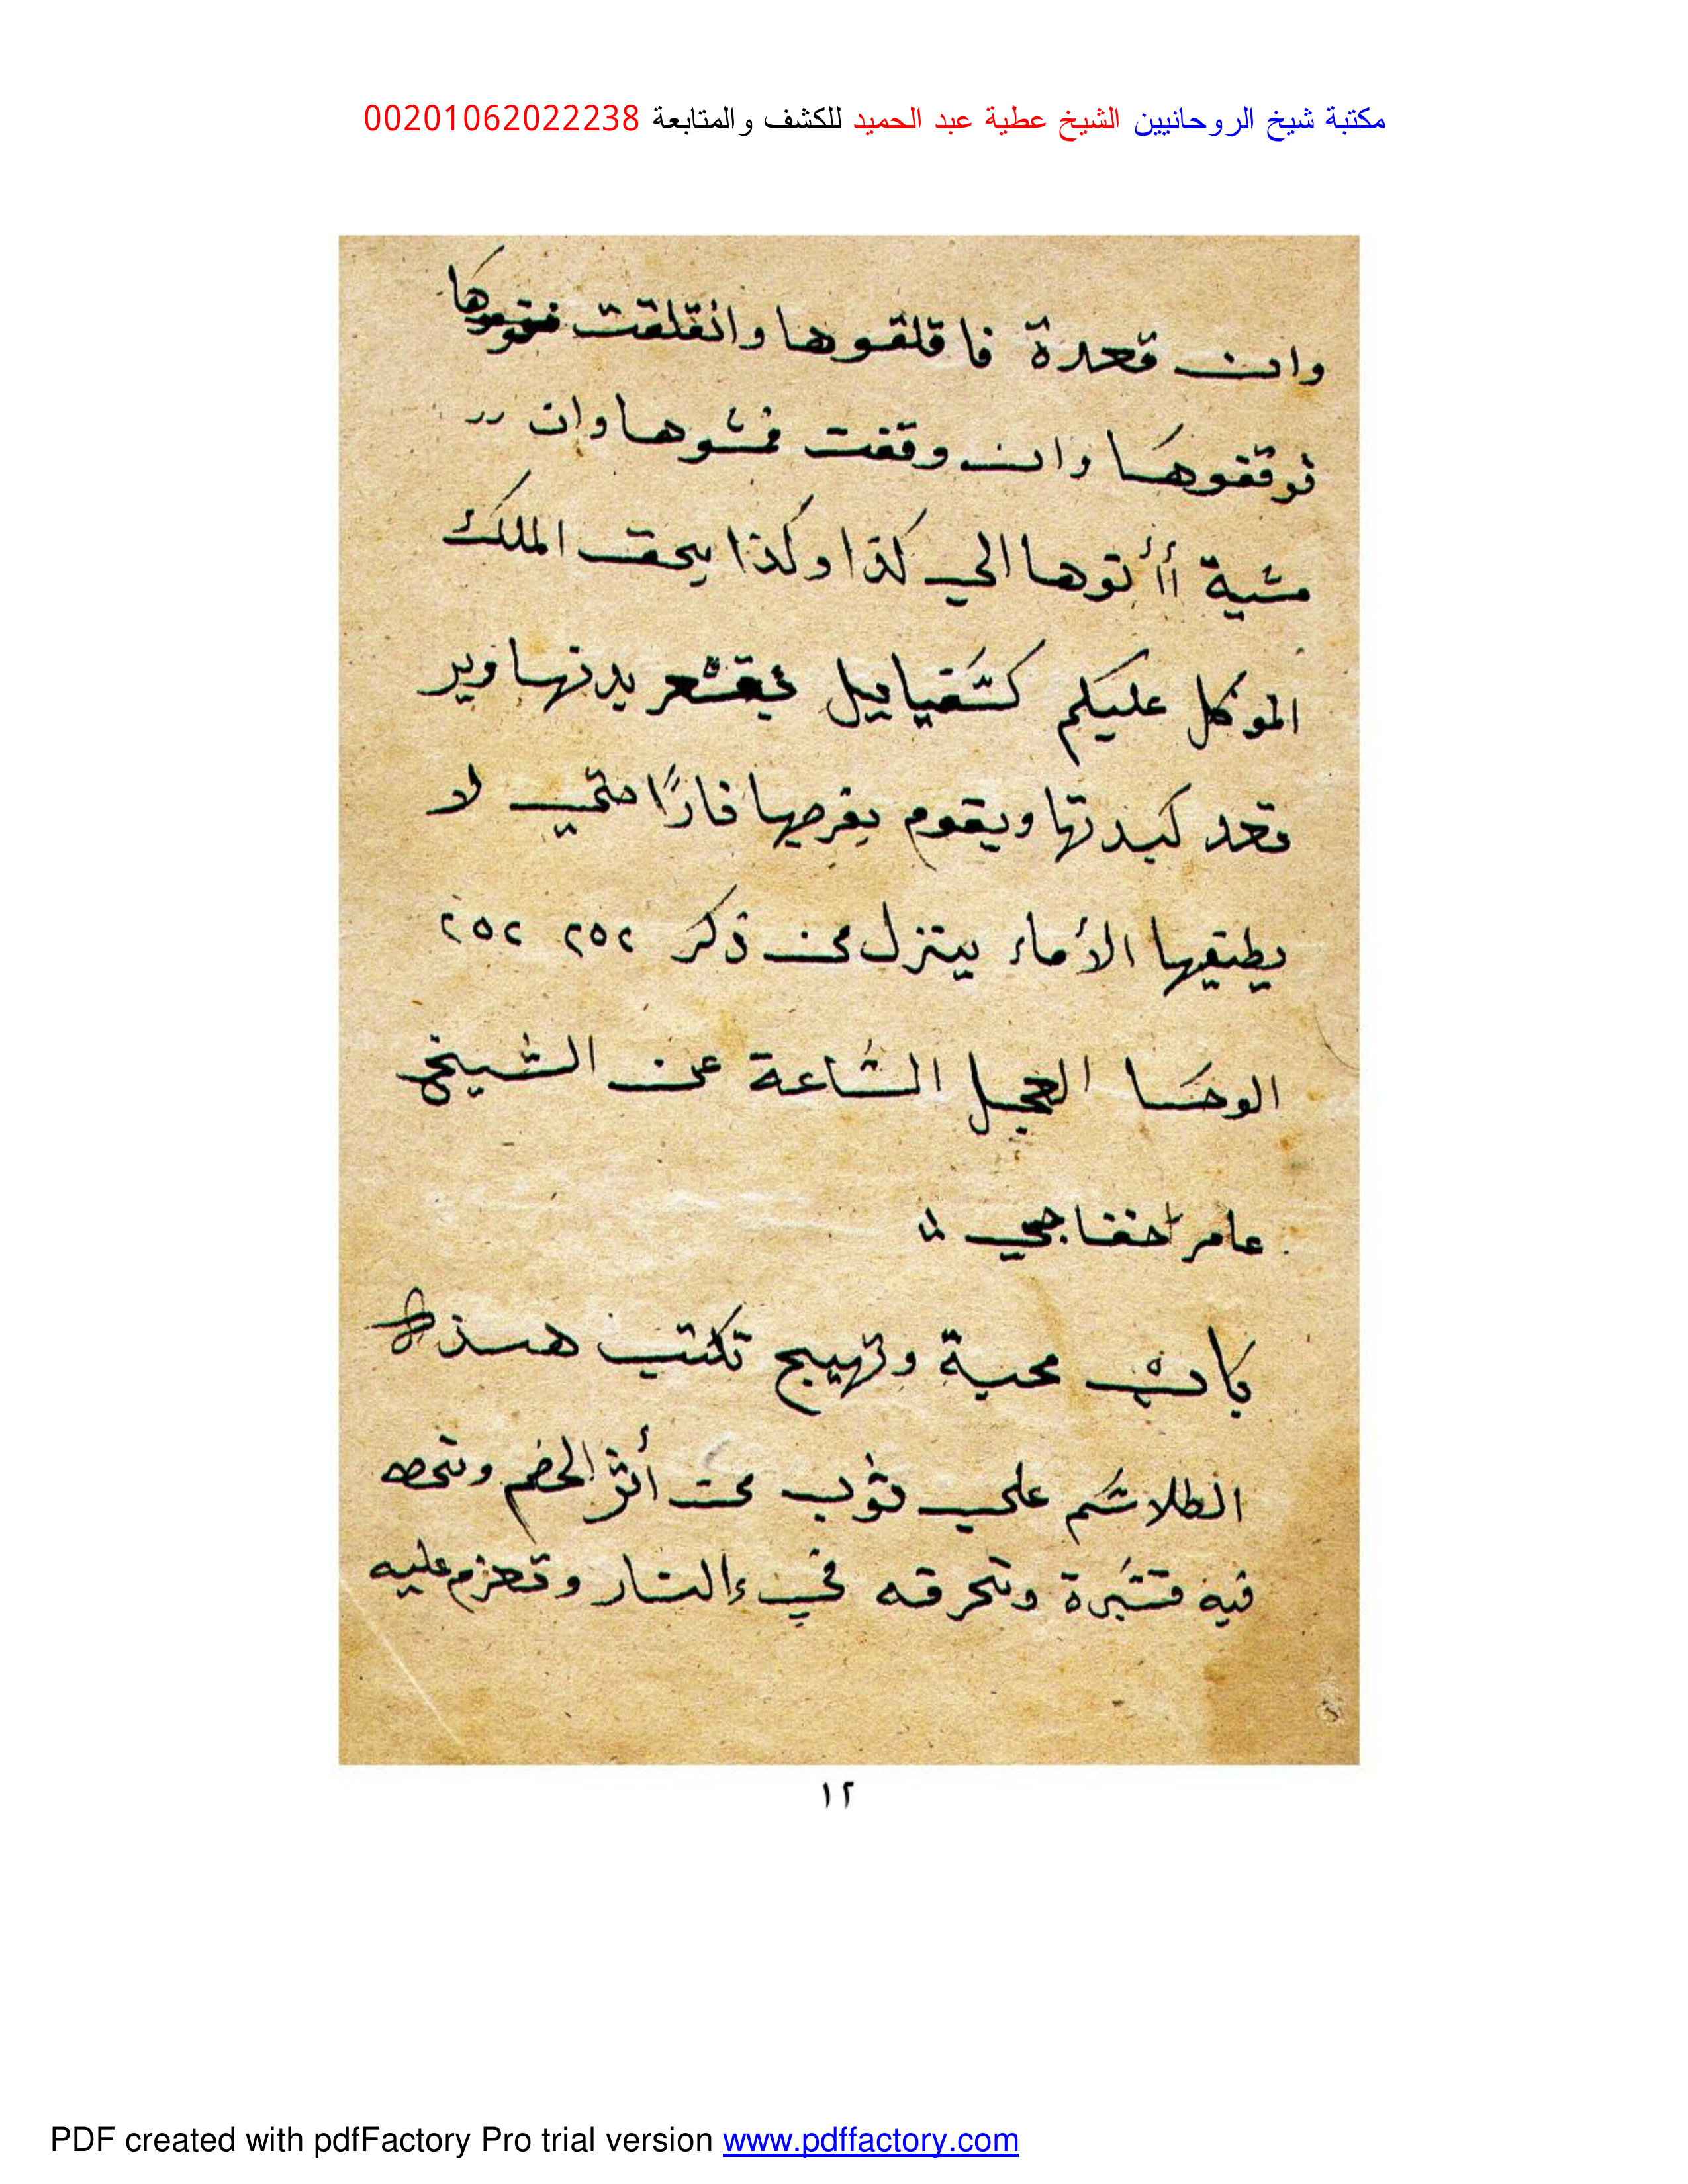 مكتبة شيخ الروحانيين الشيخ عطية عبد الحميد للكشف والمتابعة 00201062022238
وان قعدة فاقلقوها وانقلقت
توقفوها وان وقفت فمشوها وان
مشية أأتوها الي كذا وكذا بحق الملك
الموكل عليكم كشفياييل يقشعر بدنها وير
تعد كبدتها ويقوم بفرجها نارًا حتي لا
يطيقيها الأماء ينزل من ذكر ٢٥٢ ٢٥٢
الوحا العجل الساعة عن الشيخ
عامر خفاجي
باب محبة وتهييج تكتب هذه
الطلاسم علي ثوب من أثر الخصم وتحط
فيه وتحرقه في النار وتعزم عليه
١٢
PDF created with pdfFactory Pro trial version www.pdffactory.com